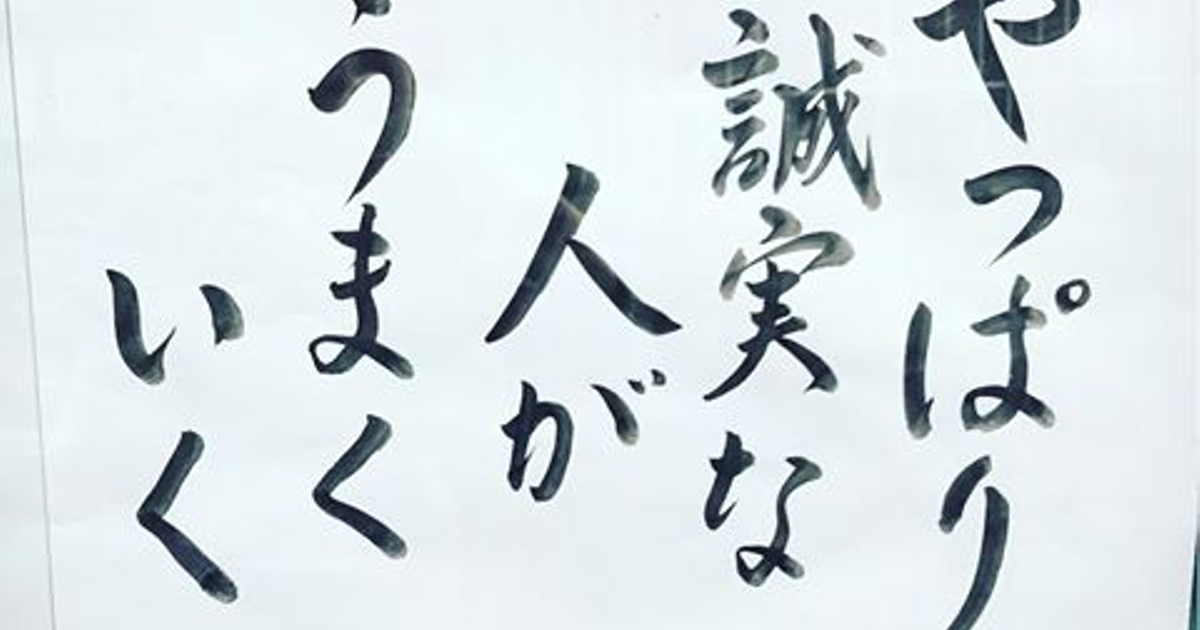 やっぱり
誠実な
人が
うまく
いく